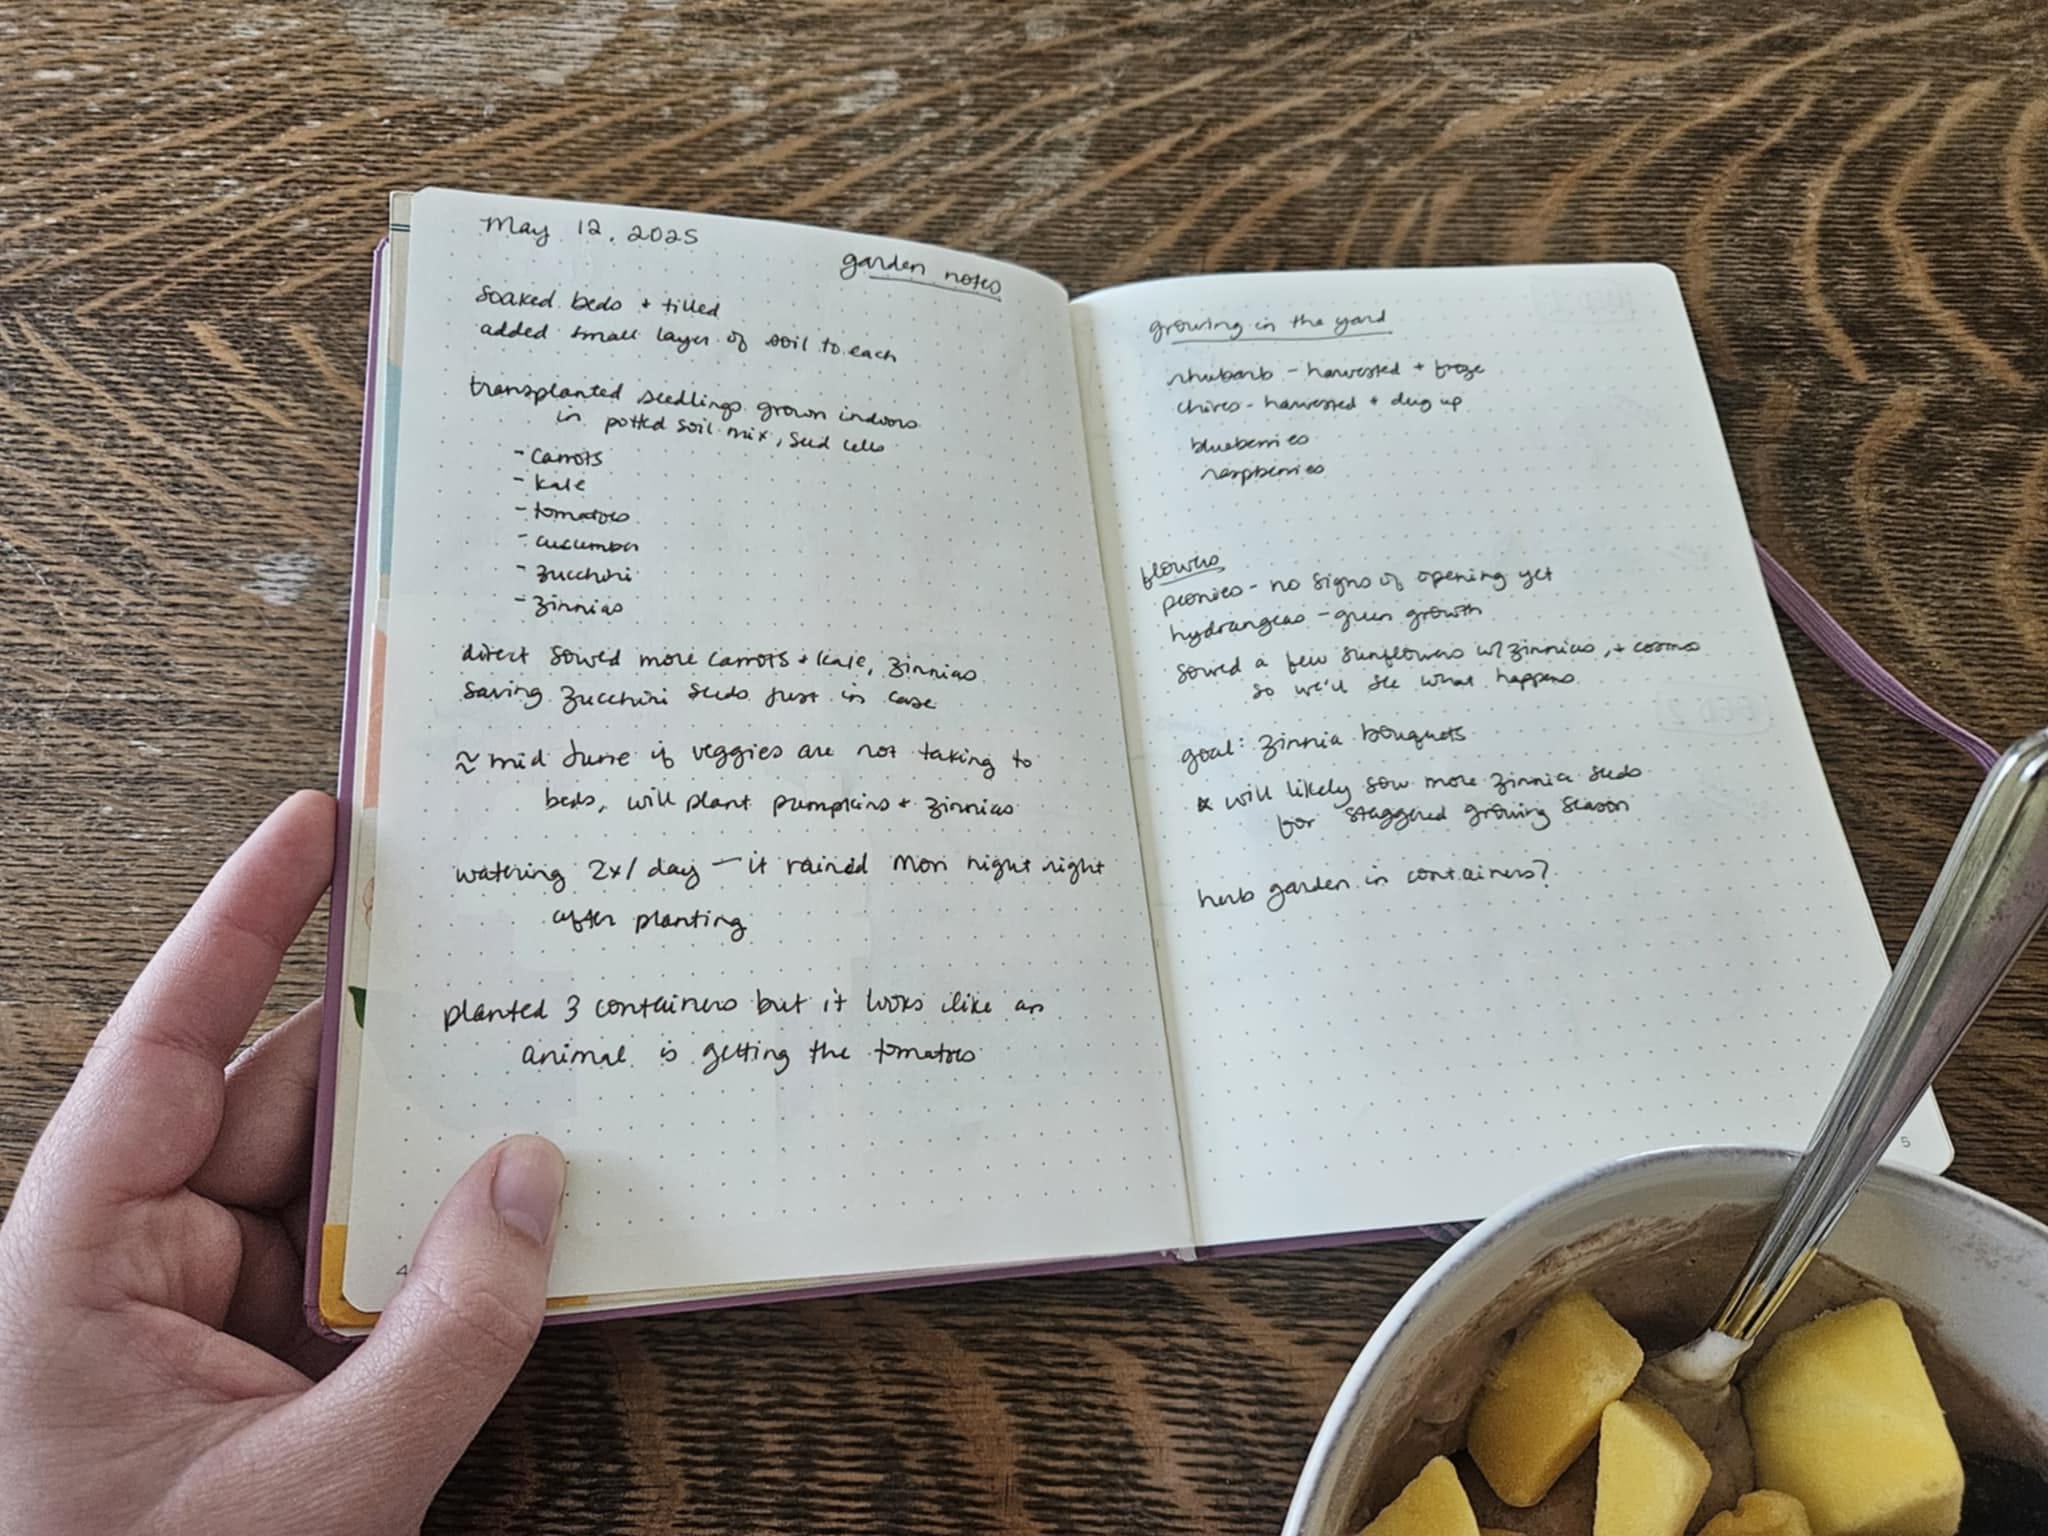 May 12, 2025
garden notes
soaked beds + tilled
added small layer of soil to each
transplanted seedlings grown indoors
in potted soil mix, seed cells
- carrots
- kale
- tomatoes
- cucumber
- zucchini
- zinnias
direct sowed more carrots + kale, zinnias
saving zucchini seeds just in case
≈ mid June if veggies are not taking to
beds, will plant pumpkins + zinnias
watering 2x/day — it rained Mon night right
after planting
planted 3 containers but it looks like an
animal is getting the tomatoes
4
growing in the yard
rhubarb - harvested + froze
chives - harvested + dug up
blueberries
raspberries
flowers
peonies - no signs of opening yet
hydrangeas - green growth
sowed a few sunflowers w/ zinnias, + cosmo
so we'll see what happens
goal: zinnia bouquets
* will likely sow more zinnia seeds
for staggered growing season
herb garden in containers?
5